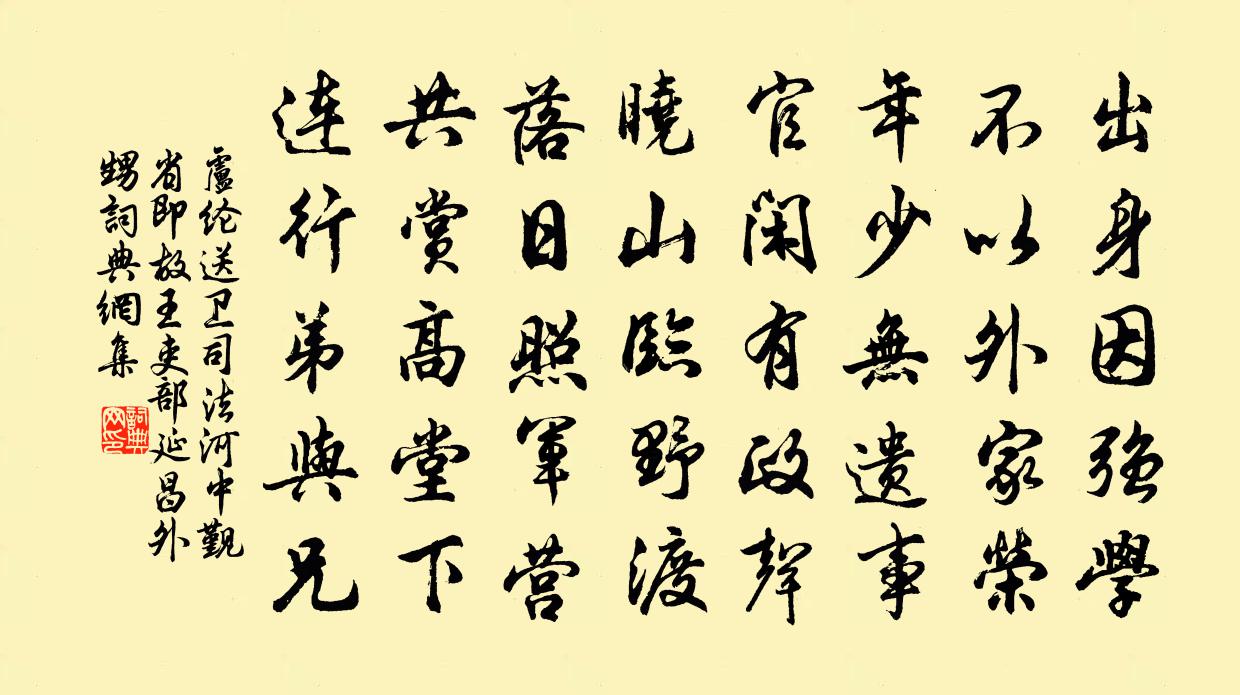 出身因強學
不以外家榮
年少無遺事
官閑有政聲
曉山臨野渡
落日照軍营
共賞高堂下
连行弟與兄
盧纶送卫司法河中覲
省即故王吏部延昌外
甥詞典網集
詞典
网印